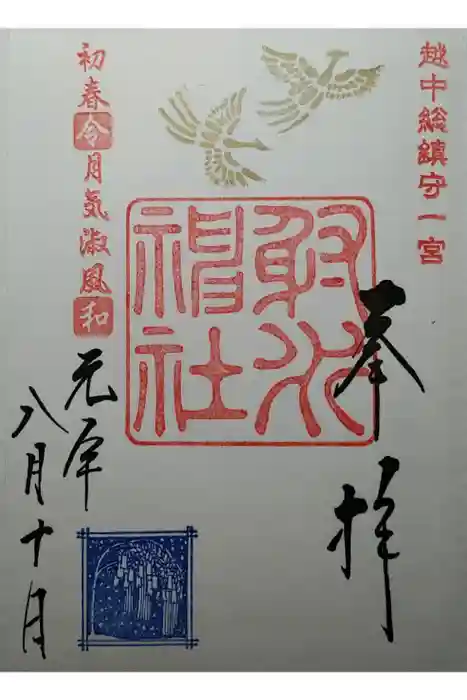 越中総鎮守一宮
奉拝
射水
神社
初春令月気淑風和
元年
八月十日